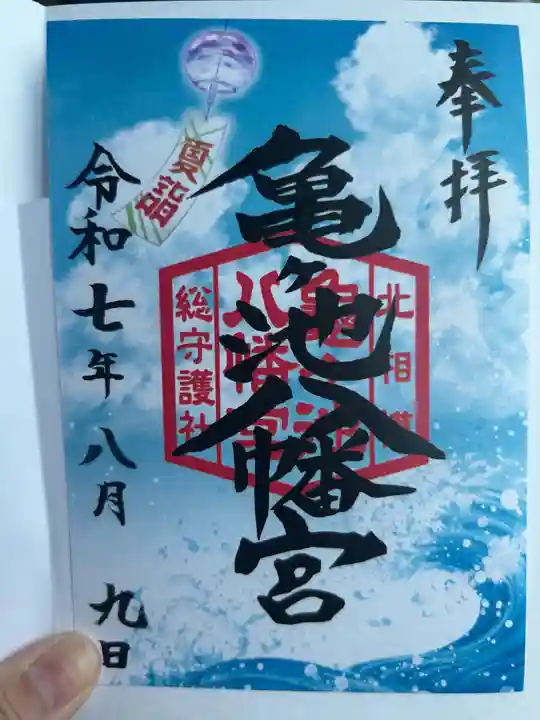 奉拝
亀ヶ池八幡宮
北相模
亀ヶ池
八幡宮
総守護社
夏詣
令和七年八月 九日